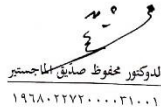 لدوكتور محفوظ صديق الماجستير
١٩٦٨٠٢٢٧٢٠٠٠٠٣١٠٠١